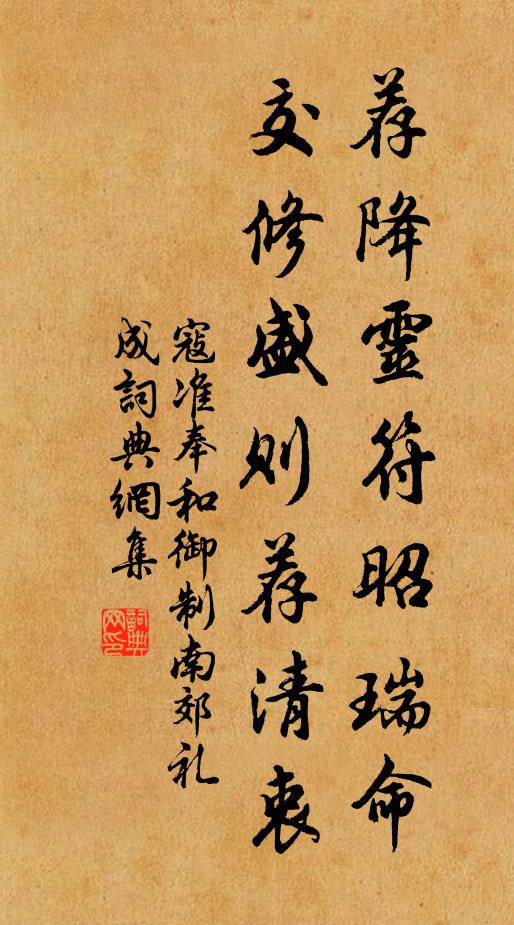 荐降靈符昭瑞命
交修盛则荐清衷
寇准奉和御制南郊礼
成詞典網集
詞典网印